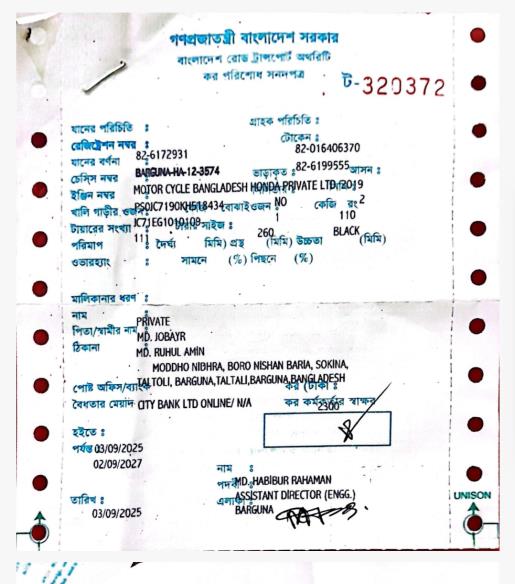 গণপ্রজাতন্ত্রী বাংলাদেশ সরকার
বাংলাদেশ রোড ট্রান্সপোর্ট অথরিটি
কর পরিশোধ সনদপত্র
ট-320372
যানের পরিচিতি : গ্রাহক পরিচিতি :
রেজিষ্ট্রেশন নম্বর : টোকেন :
82-6172931 82-016406370
যানের বর্ণনা :
BARGUNA-HA-12-3574 ভাড়াকৃত : 82-6199555 আসন :
চেসিস নম্বর :
MOTOR CYCLE BANGLADESH HONDA PRIVATE LTD /2019
ইঞ্জিন নম্বর :
PS0JC7190KH518434 বোঝাইওজন : NO কেজি রং : 2
খালি গাড়ীর ওজন :
JC71EG1010109 সাইজ : 1 110
টায়ারের সংখ্যা :
111 260 BLACK
পরিমাপ : দৈর্ঘ্য মিমি) প্রস্থ (মিমি) উচ্চতা (মিমি)
ওভারহ্যাং : সামনে (%) পিছনে (%)
মালিকানার ধরণ :
নাম
PRIVATE
পিতা/স্বামীর নাম
MD. JOBAYR
ঠিকানা
MD. RUHUL AMIN
MODDHO NIBHRA, BORO NISHAN BARIA, SOKINA,
TALTOLI, BARGUNA,TALTALI,BARGUNA,BANGLADESH
পোষ্ট অফিস/ব্যাংক কর (টাকা) :
বৈধতার মেয়াদ CITY BANK LTD ONLINE/ N/A 2300
কর কর্মকর্তার স্বাক্ষর
হইতে :
পর্যন্ত 03/09/2025
02/09/2027
নাম :
পদবী MD. HABIBUR RAHAMAN
ASSISTANT DIRECTOR (ENGG.)
এলাকা :
BARGUNA
তারিখ :
03/09/2025
UNISON